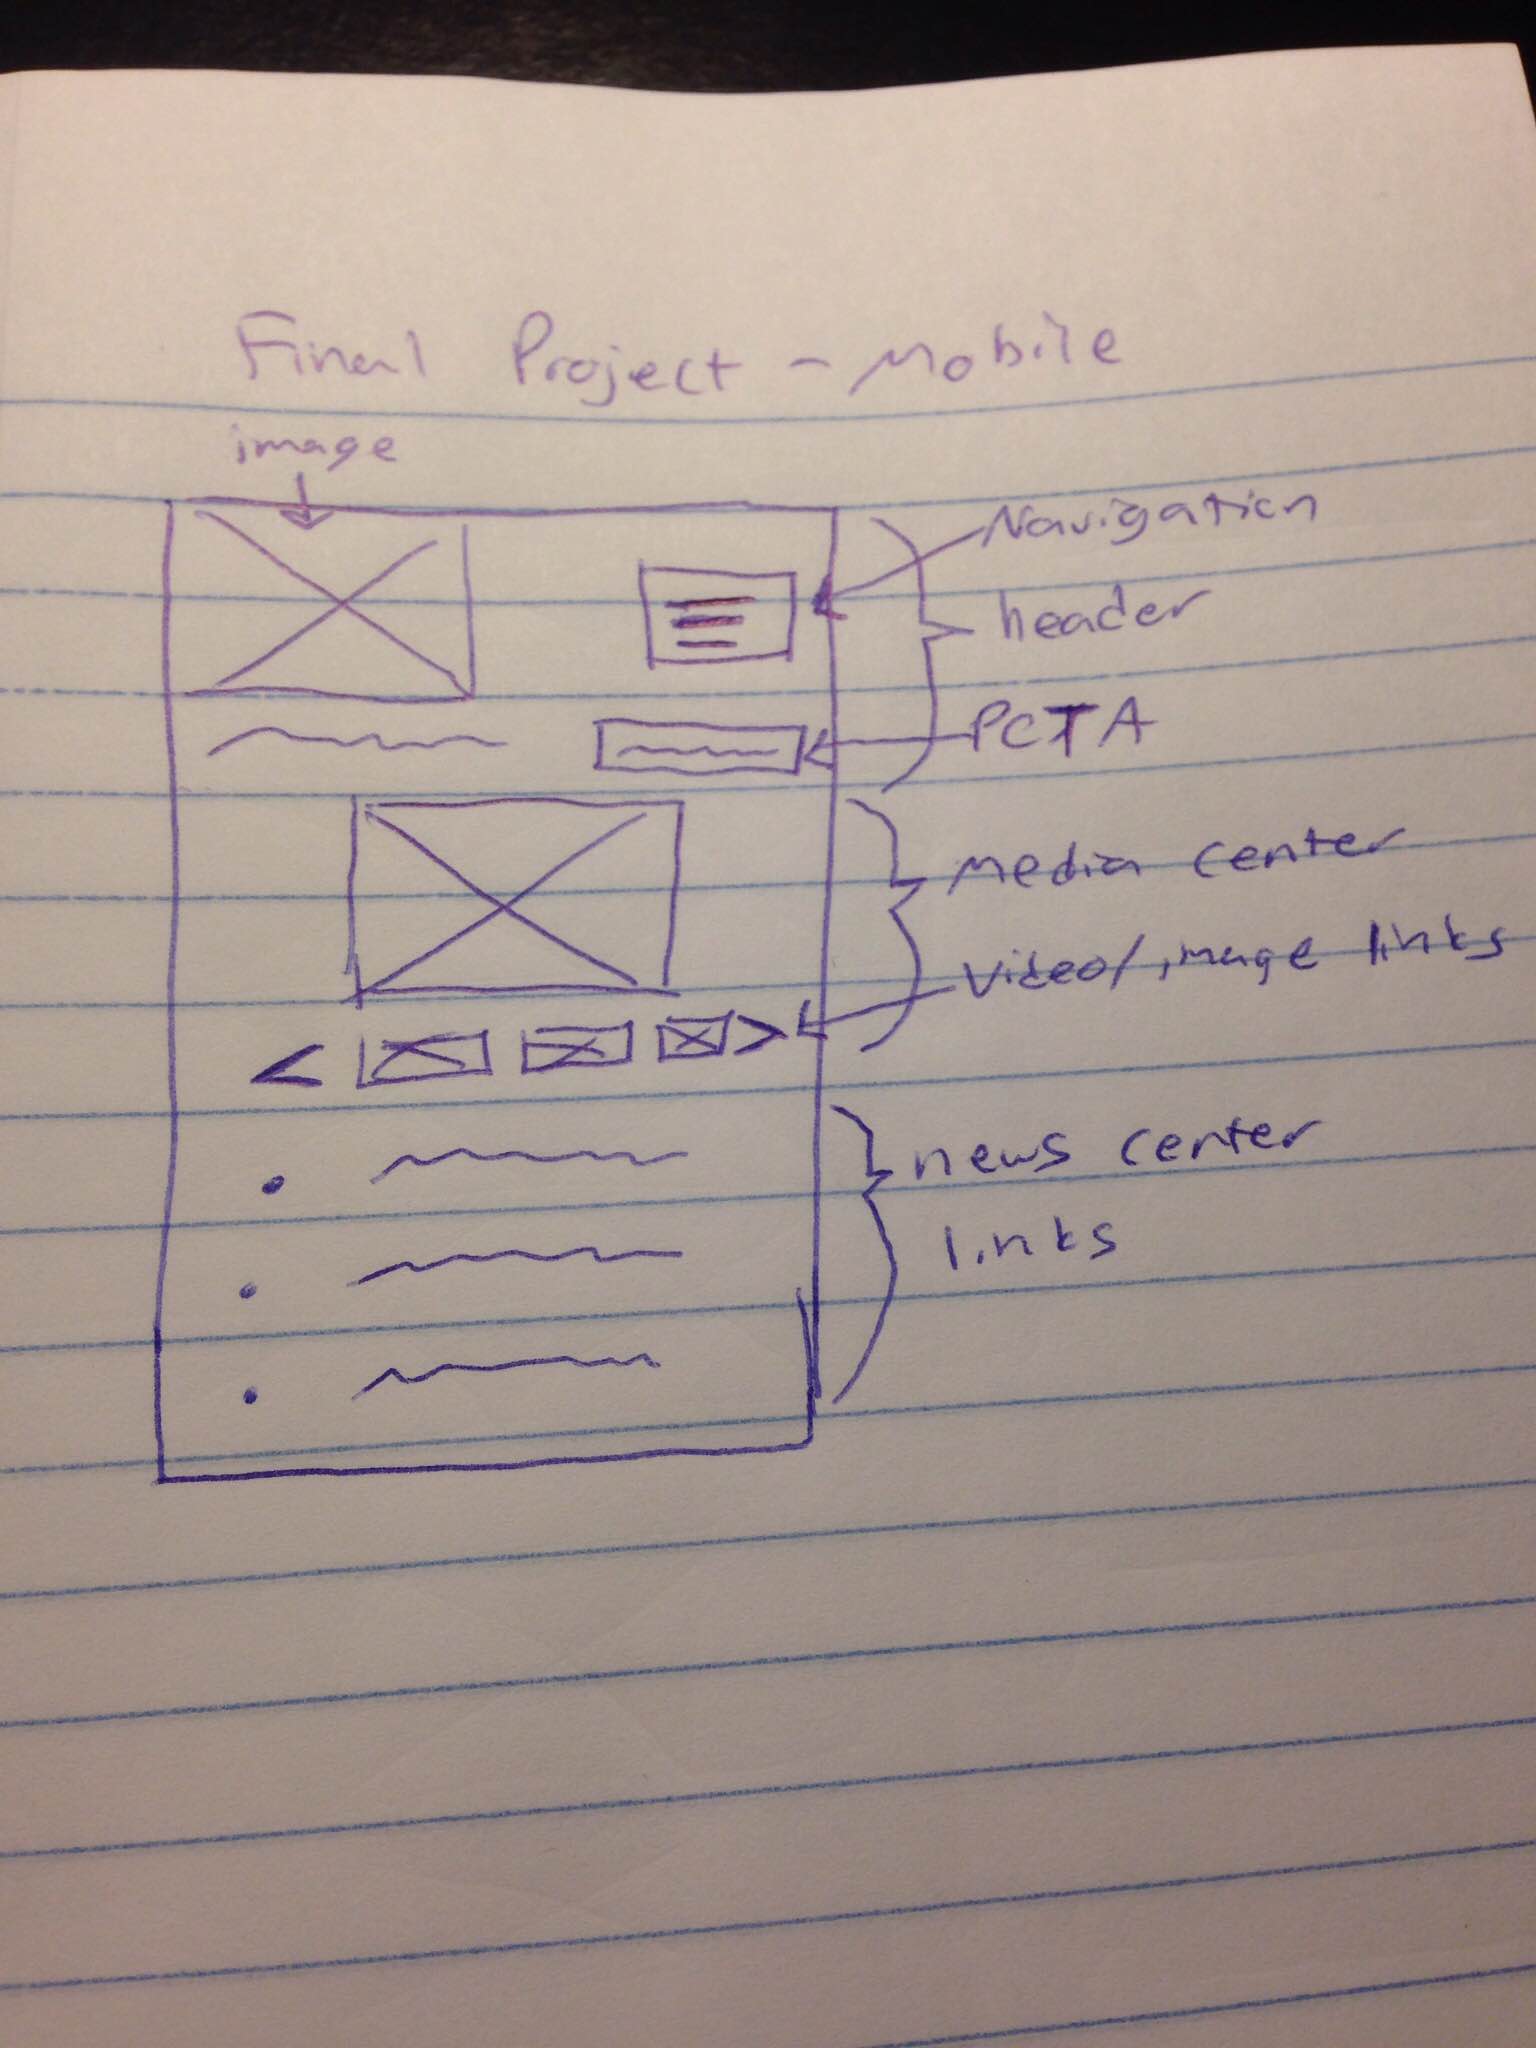 Final Project - Mobile
image
Navigation
header
PCTA
Media center
Video/image links
news center
links